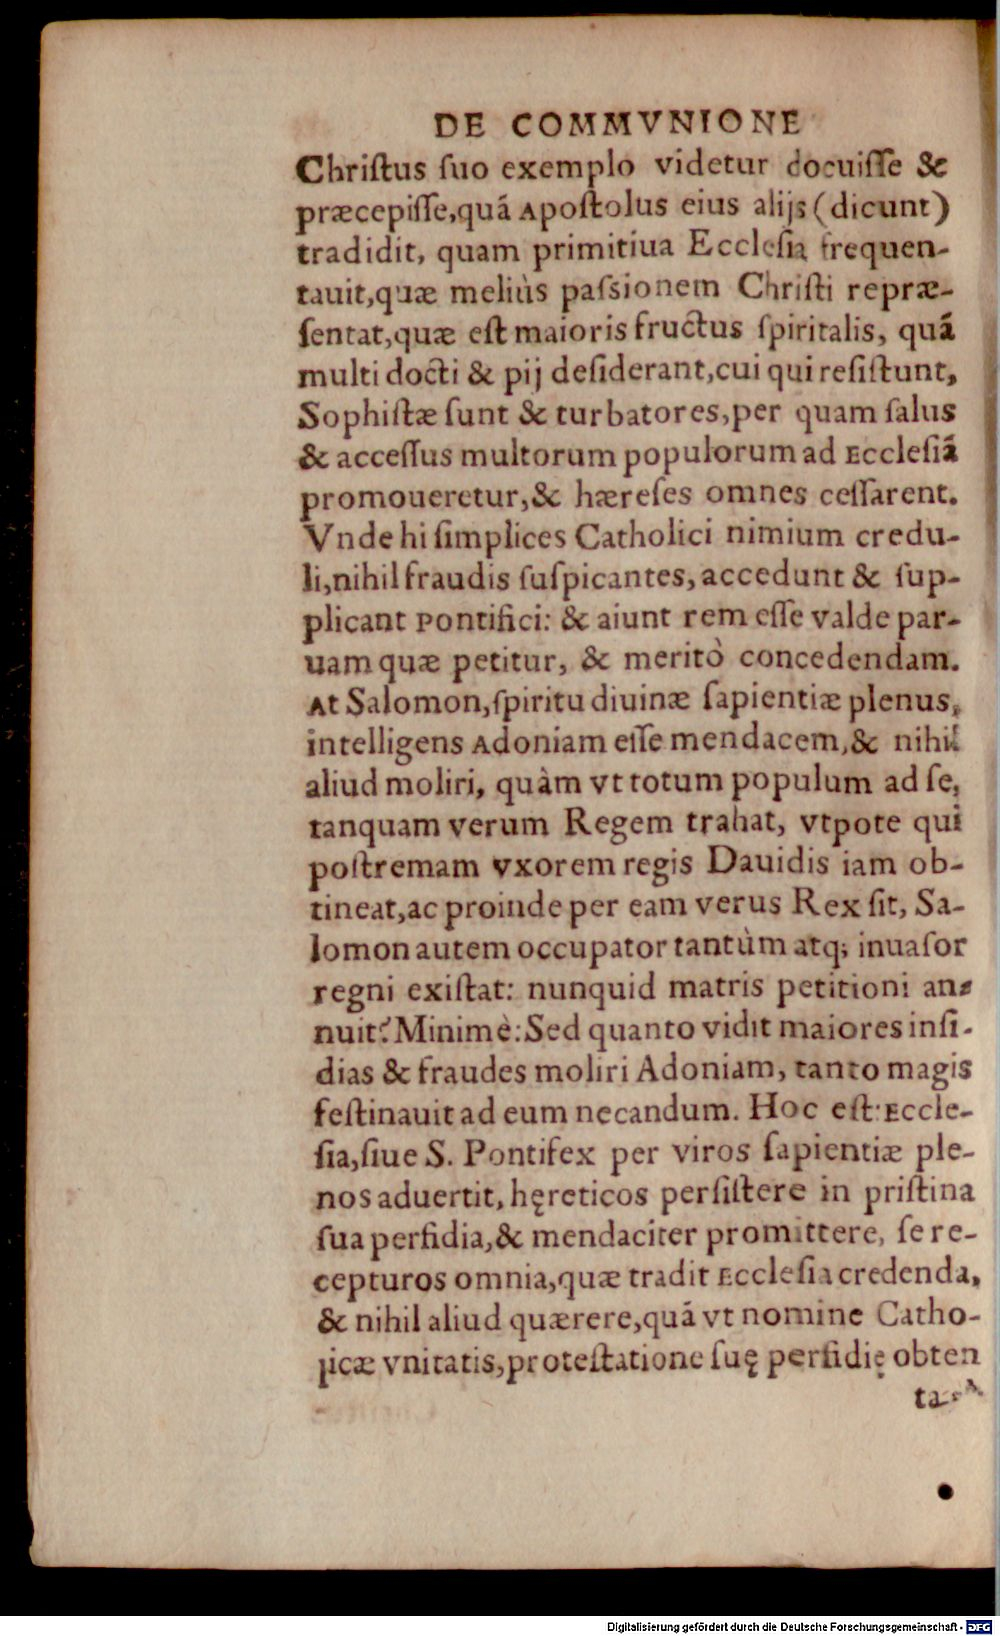 DE COMMVNIONE
Chriſtus ſuo exemplo videtur docuiſſe &
præcepiſſe,quã Apoſtolus eius alijs (dicunt)
tradidit, quam primitiua Eccleſia frequen-
tauit,quæ meliùs paſsionem Chriſti repræ-
ſentat,quæ eſt maioris fructus ſpiritalis, quã
multi docti & pij deſiderant,cui qui reſiſtunt,
Sophiſtæ ſunt & turbatores,per quam ſalus
& acceſſus multorum populorum ad Eccleſiã
promoueretur,& hæreſes omnes ceſſarent.
Vnde hi ſimplices Catholici nimium credu-
li,nihil fraudis ſuſpicantes, accedunt & ſup-
plicant Pontifici: & aiunt rem eſſe valde par-
uam quæ petitur, & meritò concedendam.
At Salomon,ſpiritu diuinæ ſapientiæ plenus,
intelligens Adoniam eſſe mendacem,& nihil
aliud moliri, quàm vt totum populum ad ſe,
tanquam verum Regem trahat, vtpote qui
poſtremam vxorem regis Dauidis iam ob-
tineat,ac proinde per eam verus Rex ſit, Sa-
lomon autem occupator tantùm atq; inuaſor
regni exiſtat: nunquid matris petitioni an-
nuit? Minimè: Sed quanto vidit maiores inſi-
dias & fraudes moliri Adoniam, tanto magis
feſtinauit ad eum necandum. Hoc eſt: Eccle-
ſia,ſiue S. Pontifex per viros ſapientiæ ple-
nos aduertit, hęreticos perſiſtere in priſtina
ſua perfidia,& mendaciter promittere, ſe re-
cepturos omnia,quæ tradit Eccleſia credenda,
& nihil aliud quærere,quã vt nomine Catho-
licæ vnitatis,proteſtatione ſuę perfidię obten
ta-
Digitalisierung gefördert durch die Deutsche Forschungsgemeinschaft - DFG